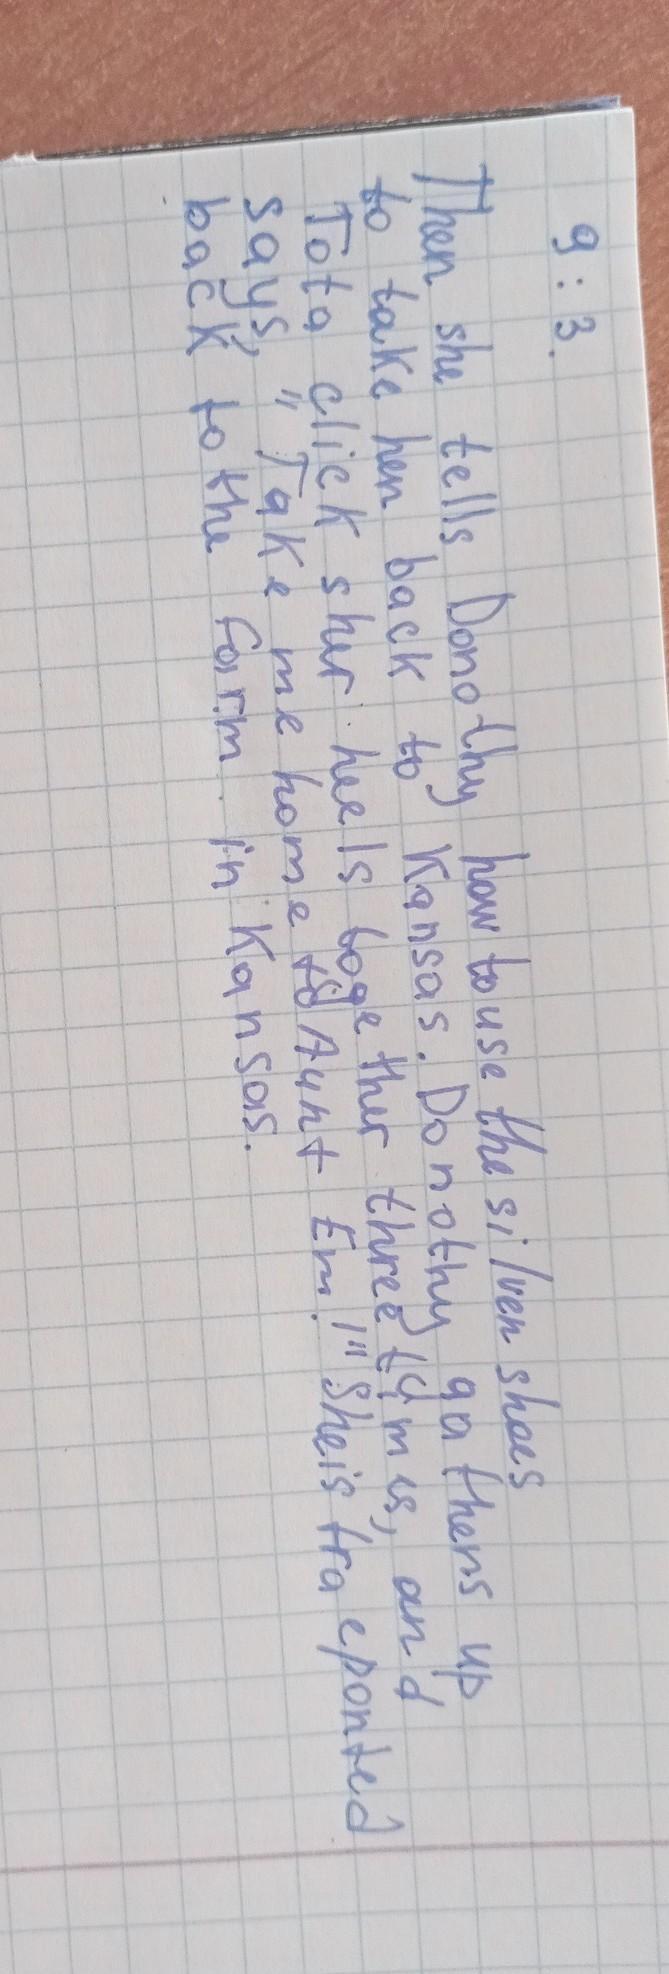 9:3.
Then she tells Donothy how to use the silven shoes
to take hen back to Kansas. Donothy gathens up
Toto click shur heels together three tymes, and
says, "Take me home to Aunt Em!" She is tra eponted
back to the farm in Kansas.